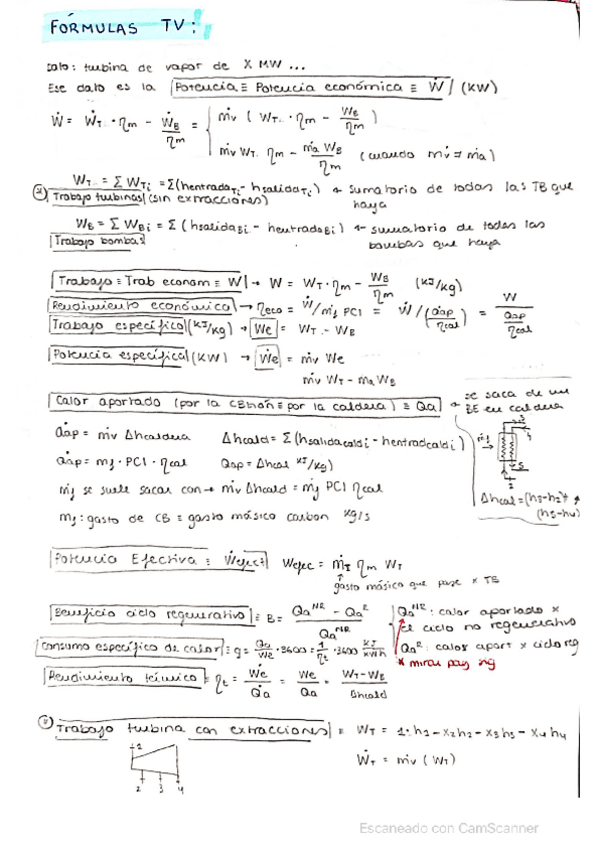 FÓRMULAS TV:
Dato: turbina de vapor de X MW ...
Ese dato es la Potencia ≡ Potencia económica ≡ Ẇ (KW)
Ẇ = Ẇ_T · η_m - Ẇ_B/η_m = { ṁv ( W_T · η_m - W_B/η_m )
ṁv W_T · η_m - ṁa W_B/η_m (cuando ṁv ≠ ṁa)
W_T = Σ W_Ti = Σ(hentrada_Ti - hsalida_Ti) ← sumatorio de todas las TB que haya
Trabajo turbinas (sin extracciones)
W_B = Σ W_Bi = Σ (hsalida_Bi - hentrada_Bi) ← sumatorio de todas las bombas que haya
Trabajo bombas
Trabajo ≡ Trab econom ≡ W → W = W_T · η_m - W_B/η_m (KJ/kg)
Rendimiento económico → η_eco = Ẇ/ṁf PCI = Ẇ/(Q̇ap/ηcal) = W/(Qap/ηcal)
Trabajo específico (KJ/kg) → We = W_T - W_B
Potencia específica (KW) → Ẇe = ṁv We
ṁv W_T - ṁa W_B
Calor aportado (por la CBtión ≡ por la caldera) ≡ Qa ← se saca de un BE en caldera
Q̇ap = ṁv Δhcaldera Δhcald = Σ(hsalidacaldi - hentradcaldi)
Q̇ap = ṁf · PCI · ηcal Qap = Δhcal KJ/kg)
ṁf se suele sacar con → ṁv Δhcald = ṁf PCI ηcal
Δhcal = (h3-h2)+
(h5-h4)
ṁf: gasto de CB ≡ gasto másico carbon kg/s
Potencia Efectiva ≡ Ẇefec Wefec = ṁ_T η_m W_T
gasto másico que pasa x TB
Beneficio ciclo regenerativo ≡ B = (Qa^NR - Qa^R)/Qa^NR
Qa^NR: calor aportado x el ciclo no regenerativo
Qa^R: calor aport x ciclo reg
* mirar pag
Consumo específico de calor ≡ q = Qa/We · 3600 = 1/ηt · 3600 KJ/KWh
Rendimiento térmico ≡ ηt = Ẇe/Q̇a = We/Qa = (W_T - W_B)/Δhcald
Trabajo turbina con extracciones ≡ W_T = 1·h1 - x2h2 - x3h3 - x4h4
Ẇ_T = ṁv (W_T)
1
2 3 4
Escaneado con CamScanner